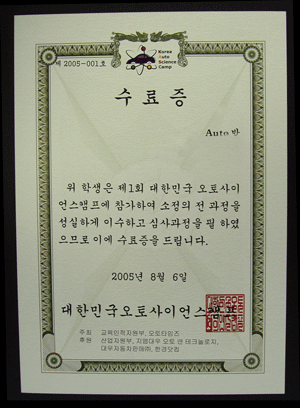 제 2005-001호
Korea
Auto
Science
Camp
수료증
Auto 반
위 학생은 제1회 대한민국 오토사이
언스캠프에 참가하여 소정의 전 과정을
성실하게 이수하고 심사과정을 필 하였
으므로 이에 수료증을 드립니다.
2005년 8월 6일
대한민국오토사이언스캠프
주최 교육인적자원부, 오토타임즈
후원 산업자원부, 지엠대우 오토 앤 테크놀로지,
대우자동차판매㈜, 한경닷컴